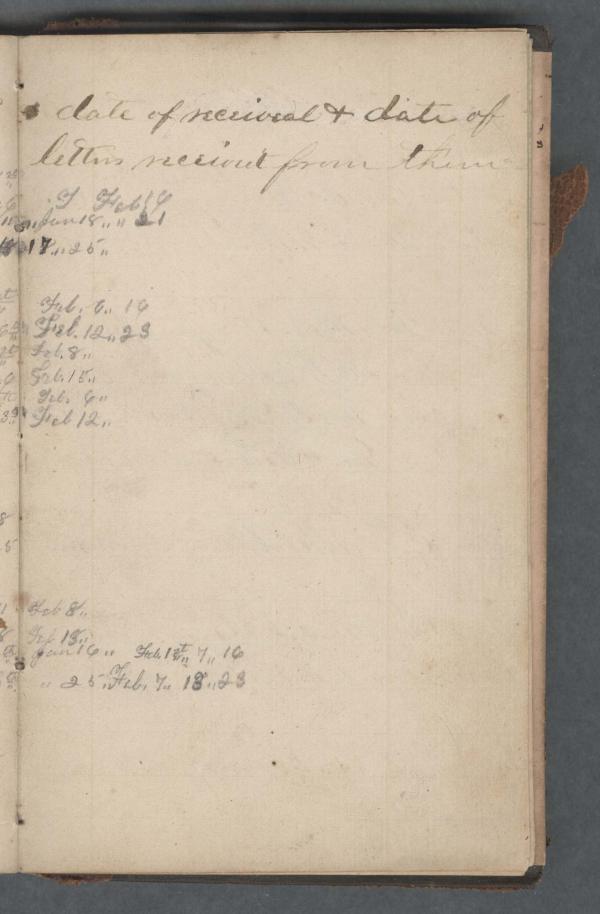 date of receival & date of
letters receivd from them
T Feb 16
" Jan 18 " " 21
17 " 25 "
Feb. 6 " 16
Feb. 12 " 23
Feb. 8 "
Feb. 15 "
Feb. 6 "
Feb 12 "
Feb 8 "
Feb 18 "
Jan 16 " Feb. 1st " 7 " 16
" 25 " Feb. 7 " 18 " 23